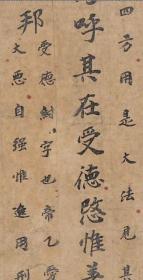 四方用是大法見其
呼其在受德暋惟羞
邦
受德紂字也帝乙愛
大惡自强惟進用刑